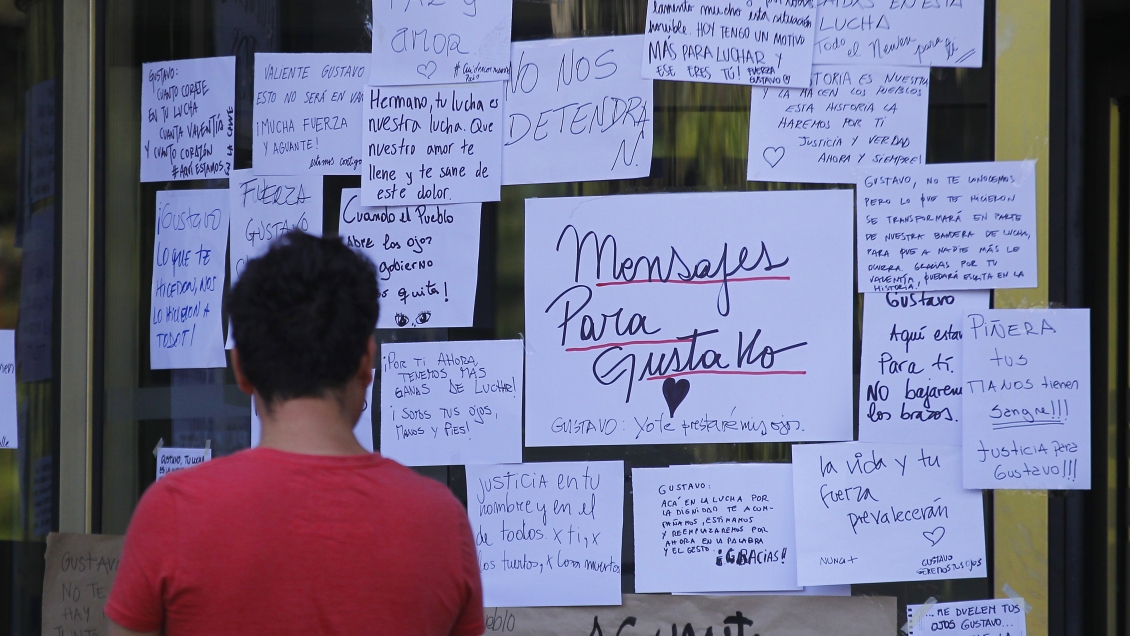 amor
lamento mucho esta situación
horrible. HOY TENGO UN MOTIVO
MÁS PARA LUCHAR Y
ESE ERES TÚ! FUERZA
GUSTAVO
EN ESTA
LUCHA
Todo el
para ti
GUSTAVO:
CUANTO CORAJE
EN TU LUCHA
CUANTA VALENTÍA
Y CUANTO CORAZÓN
#AQUÍ ESTAMOS
VALIENTE GUSTAVO
ESTO NO SERÁ EN VA
¡MUCHA FUERZA
Y AGUANTE!
estamos contigo
Hermano, tu lucha es
nuestra lucha. Que
nuestro amor te
llene y te sane de
este dolor.
NO NOS
DETENDRÁ
N.
HISTORIA ES NUESTRA
Y LA HACEN LOS PUEBLOS
ESTA HISTORIA LA
HAREMOS POR TI
JUSTICIA Y VERDAD
AHORA Y SIEMPRE!
GUSTAVO, NO TE CONOCEMOS
PERO LO QUE TE HICIERON
SE TRANSFORMARÁ EN PARTE
DE NUESTRA BANDERA DE LUCHA,
PARA QUE A NADIE MÁS LE
OCURRA. GRACIAS POR TU
VALENTÍA, QUEDARÁ ESCRITA EN LA
HISTORIA.
¡GUSTAVO
LO QUE TE
HICIERON, NOS
LO HICIERON A
TODES!
FUERZA
GUSTAVO
Cuando el Pueblo
abre los ojos
gobierno
quita!
Mensajes
Para
GustaVo
GUSTAVO: Yo te prestaré mis ojos.
Gustavo
Aquí esta
Para ti.
NO bajarem
los brazos.
PIÑERA
tus
MANOS tienen
sangre!!!
Justicia para
Gustavo!!!
¡POR TI AHORA
TENEMOS MÁS
GANAS DE LUCHAR!
¡SOMOS TUS OJOS,
MANOS Y PIES!
GUSTAVO, TU LUCHA
JUSTICIA en tu
nombre y en el
de todos. x ti, x
los tuertos, x los muertos
GUSTAVO:
ACÁ EN LA LUCHA POR
LA DIGNIDAD TE ACOM-
PAÑAMOS, ESTIMAMOS
Y REEMPLAZAREMOS POR
AHORA EN LA PALABRA
Y EL GESTO. ¡GRACIAS!
la vida y tu
fuerza
prevalecerán
NUNCA+
GUSTAVO
SEREMOS TUS OJOS
GUSTAV
NO TE
HAY
...ME DUELEN TUS
OJOS GUSTAVO...